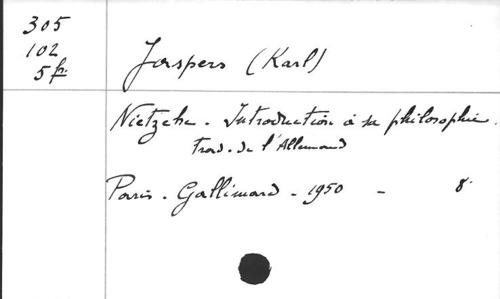 305
102
5 fr.
Jaspers (Karl)
Nietzsche - Introduction à sa philosophie.
Trad. de l'Allemand
Paris - Gallimard - 1950 - 8°